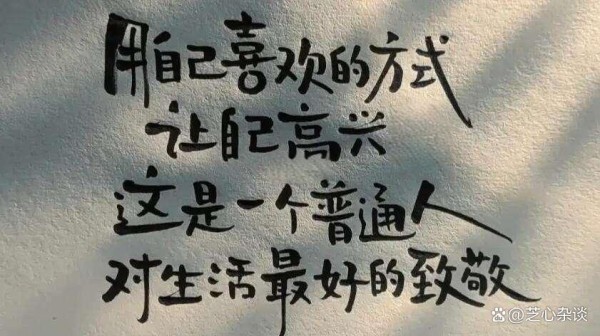 用自己喜欢的方式
让自己高兴
这是一个普通人
对生活最好的致敬
芝心杂谈